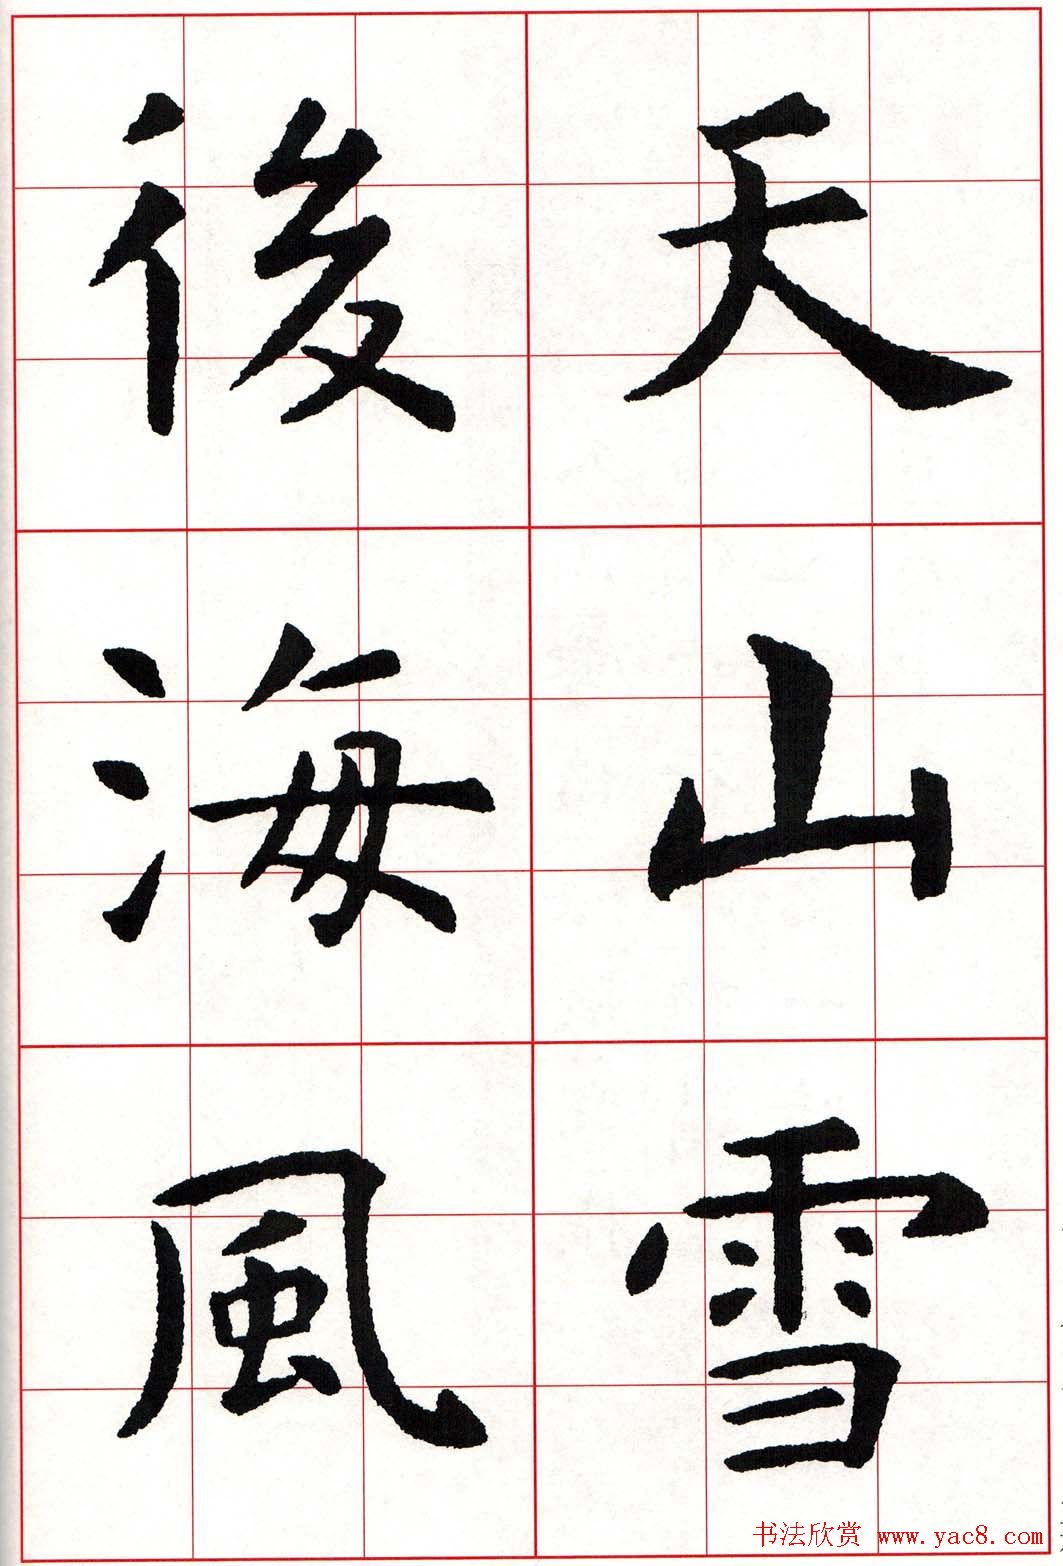 天山雪
後海風
书法欣赏 www.yac8.com